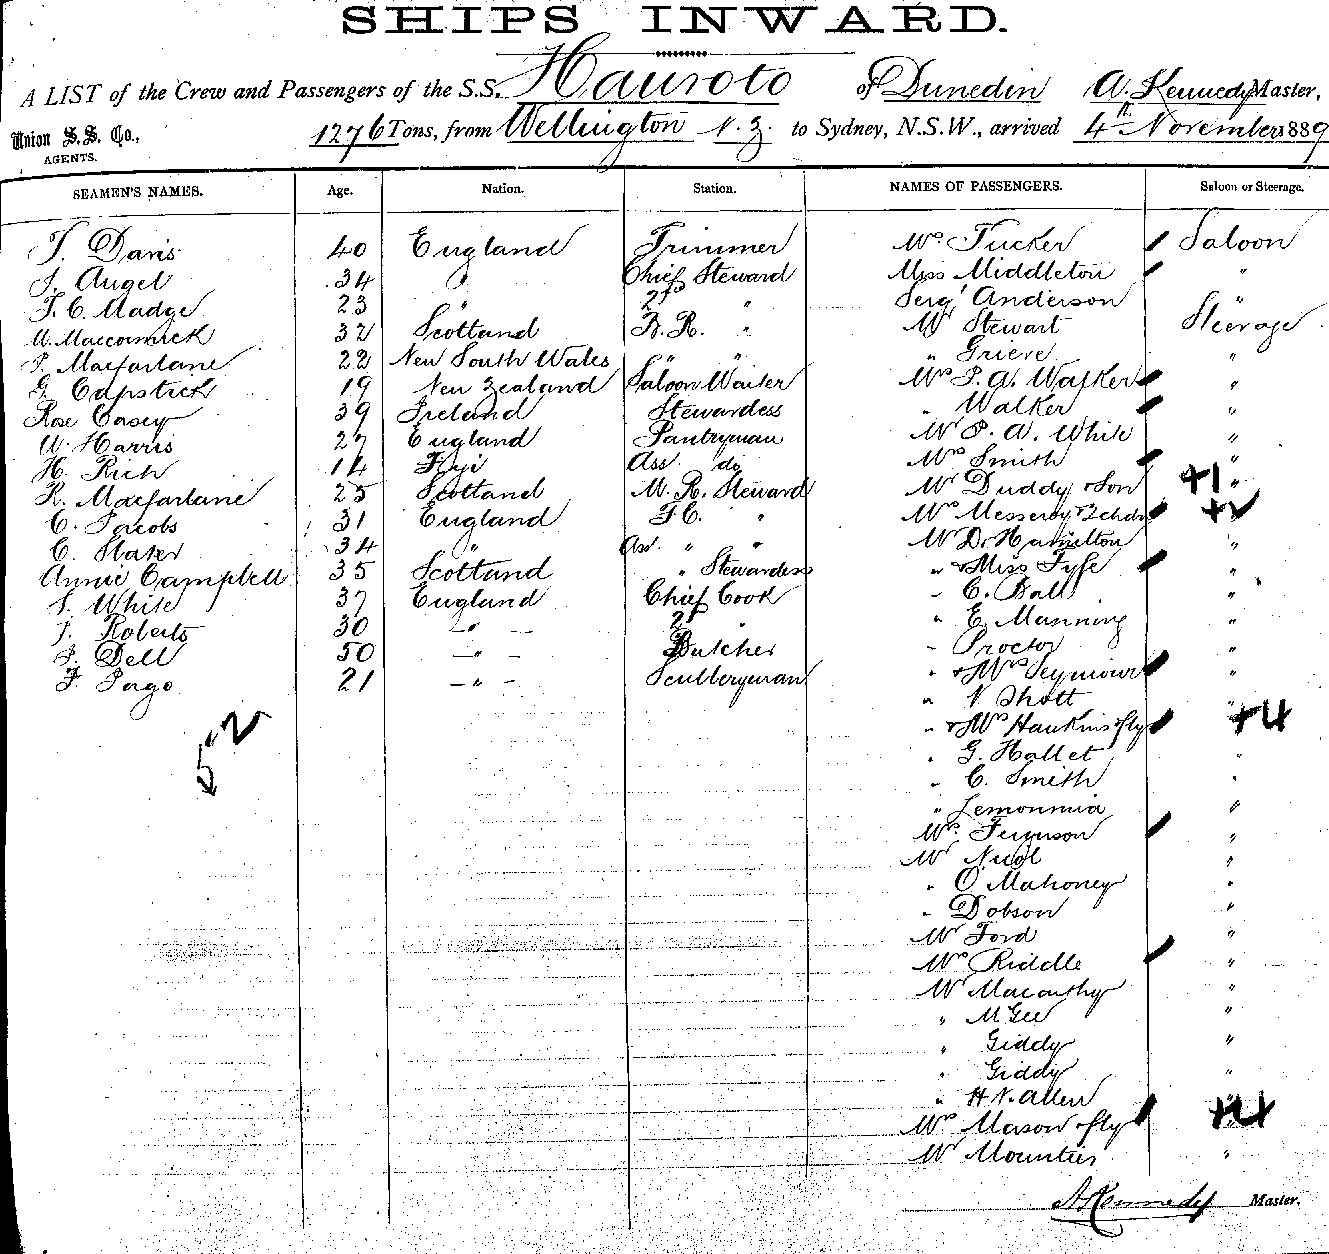 SHIPS INWARD.
A LIST of the Crew and Passengers of the S.S. Hauroto of Dunedin A. Kennedy Master,
Union S.S. Co., AGENTS. 1276 Tons, from Wellington N.Z. to Sydney, N.S.W., arrived 4th November 1889
SEAMEN'S NAMES. Age. Nation. Station. NAMES OF PASSENGERS. Saloon or Steerage.
T. Davis 40 England Trimmer Mrs Tucker Saloon
J. Angel 34 " Chief Steward Miss Middleton "
F. C. Madge 23 " 2nd " Sergt Anderson "
W. Maccormick 32 Scotland B. R. " Mr Stewart Steerage
P. Macfarlane 22 New South Wales " " " Grieve "
G. Capstick 19 New Zealand Saloon Waiter Mrs P. A. Walker "
Rose Casey 39 Ireland Stewardess " Walker "
W. Harris 27 England Pantryman Mr P. A. White "
H. Rich 14 Fiji Ass. do Mrs Smith "
R. Macfarlane 25 Scotland M. R. Steward Mr Duddy & Son +1 "
C. Jacobs 31 England F.C. " Mrs Messeroy & 2 chdn +2
C. Slater 34 " Ass. " " Mr D. Hamilton "
Annie Campbell 35 Scotland " Stewardess " & Miss Fyfe "
S. White 37 England Chief Cook " C. Ball "
J. Roberts 30 " 2nd " " E. Manning "
J. Dell 50 " Butcher " Proctor "
F. Pago 21 " Sculleryman " & Mrs Seymour "
" V. Shott
52 " & Mrs Hawkins & fly +4
" G. Hallet "
" C. Smith "
" Lemonmia "
Mrs Ferguson "
Mr Nicol "
" O'Mahoney "
" Dobson "
Mr Ford "
Mrs Riddle "
Mr Macarthy "
" McGee "
" Giddy "
" Giddy "
" H. N. Allen "
Mrs Mason & fly +4
Mr "
A Kennedy Master.